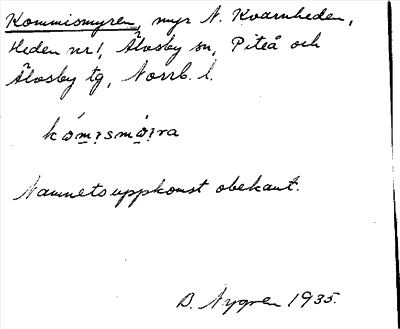 Kommismyren, myr N. Kvarnheden,
Heden nr 1, Älvsby sn, Piteå och
Älvsby tg, Norrb. l.
kómısmò̤ı̣ra
Namnets uppkomst obekant.
D. Nygren 1935.